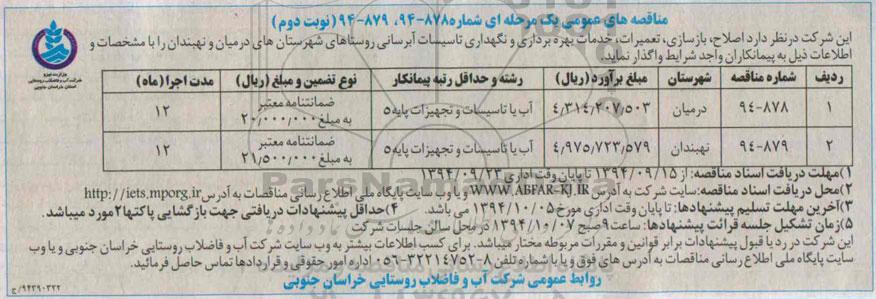 مناقصه های عمومی یک مرحله ای شماره ۸۷۸-۹۴، ۸۷۹-۹۴ (نوبت دوم)
این شرکت درنظر دارد اصلاح، بازسازی، تعمیرات، خدمات بهره برداری و نگهداری تاسیسات آبرسانی روستاهای شهرستان های درمیان و نهبندان را با مشخصات و
اطلاعات ذیل به پیمانکاران واجد شرایط واگذار نماید.
وزارت نیرو
شرکت آب و فاضلاب روستایی
استان خراسان جنوبی
ردیف شماره مناقصه شهرستان مبلغ برآورد (ریال) رشته و حداقل رتبه پیمانکار نوع تضمین و مبلغ (ریال) مدت اجرا (ماه)
۱ ۹۴-۸۷۸ درمیان ۴٫۳۱۴٫۲۰۷٫۵۰۳ آب یا تاسیسات و تجهیزات پایه ۵ ضمانتنامه معتبر به مبلغ ۲۰٫۰۰۰٫۰۰۰ ۱۲
۲ ۹۴-۸۷۹ نهبندان ۴٫۹۷۵٫۷۲۳٫۵۷۹ آب یا تاسیسات و تجهیزات پایه ۵ ضمانتنامه معتبر به مبلغ ۲۱٫۵۰۰٫۰۰۰ ۱۲
۱) مهلت دریافت اسناد مناقصه: از ۱۳۹۴/۰۹/۱۵ تا پایان وقت اداری ۱۳۹۴/۰۹/۲۳
۲) محل دریافت اسناد مناقصه: سایت شرکت به آدرس WWW.ABFAR-KJ.IR و یا وب سایت پایگاه ملی اطلاع رسانی مناقصات به آدرس http://iets.mporg.ir
۳) آخرین مهلت تسلیم پیشنهادها: تا پایان وقت اداری مورخ ۱۳۹۴/۱۰/۰۵ می باشد. ۴) حداقل پیشنهادات دریافتی جهت بازگشایی پاکتها ۲ مورد میباشد.
۵) زمان تشکیل جلسه قرائت پیشنهادها: ساعت ۹ صبح ۱۳۹۴/۱۰/۰۷ در محل سالن جلسات شرکت
این شرکت در رد یا قبول پیشنهادات برابر قوانین و مقررات مربوطه مختار میباشد. برای کسب اطلاعات بیشتر به وب سایت شرکت آب و فاضلاب روستایی خراسان جنوبی و یا وب
سایت پایگاه ملی اطلاع رسانی مناقصات به آدرس های فوق و یا با شماره تلفن ۸-۳۲۲۱۴۷۵۲-۰۵۶ اداره امور حقوقی و قراردادها تماس حاصل فرمائید.
روابط عمومی شرکت آب و فاضلاب روستایی خراسان جنوبی
۹۴۳۹۰۳۲۲/ج